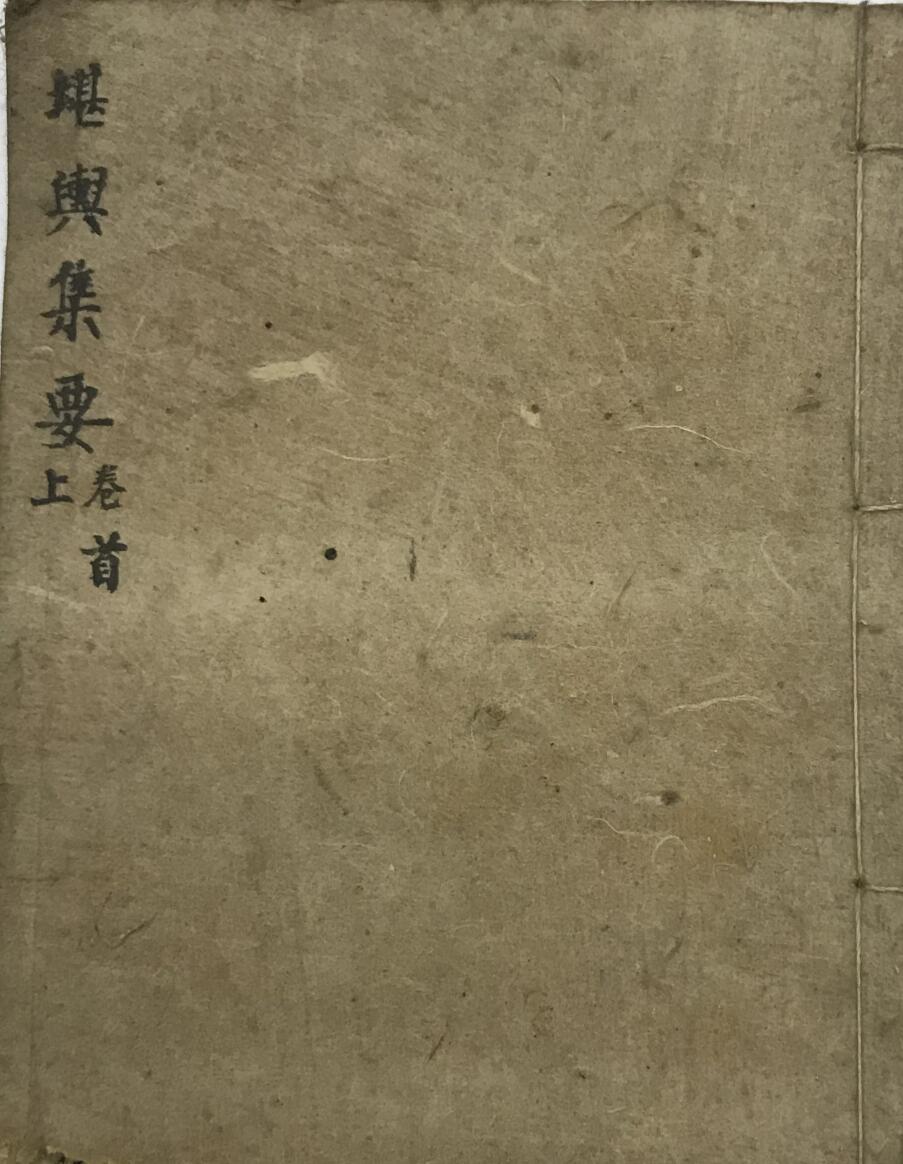 堪輿集要
卷首
上